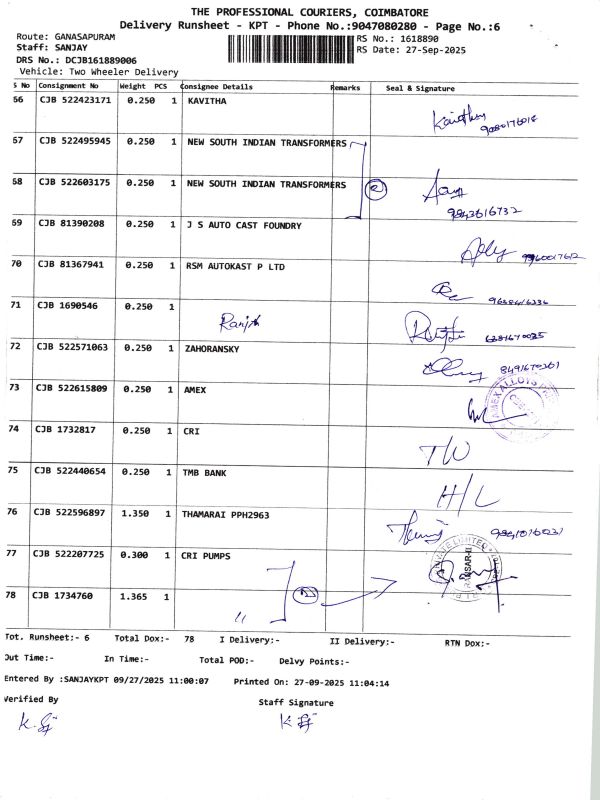 THE PROFESSIONAL COURIERS, COIMBATORE
Delivery Runsheet - KPT - Phone No.:9047080280 - Page No.:6
Route: GANASAPURAM
RS No.: 1618890
Staff: SANJAY
RS Date: 27-Sep-2025
DRS No.: DCJB161889006
Vehicle: Two Wheeler Delivery
S No Consignment No Weight PCS Consignee Details Remarks Seal & Signature
66 CJB 522423171 0.250 1 KAVITHA
67 CJB 522495945 0.250 1 NEW SOUTH INDIAN TRANSFORMERS
68 CJB 522603175 0.250 1 NEW SOUTH INDIAN TRANSFORMERS 2
9843616732
69 CJB 81390208 0.250 1 J S AUTO CAST FOUNDRY
70 CJB 81367941 0.250 1 RSM AUTOKAST P LTD
71 CJB 1690546 0.250 1 Ranjith
72 CJB 522571063 0.250 1 ZAHORANSKY
73 CJB 522615809 0.250 1 AMEX
74 CJB 1732817 0.250 1 CRI
75 CJB 522440654 0.250 1 TMB BANK H/L
76 CJB 522596897 1.350 1 THAMARAI PPH2963
77 CJB 522207725 0.300 1 CRI PUMPS
78 CJB 1734760 1.365 1 "
Tot. Runsheet:- 6 Total Dox:- 78 I Delivery:- II Delivery:- RTN Dox:-
Out Time:- In Time:- Total POD:- Delvy Points:-
Entered By :SANJAYKPT 09/27/2025 11:00:07 Printed On: 27-09-2025 11:04:14
Verified By Staff Signature